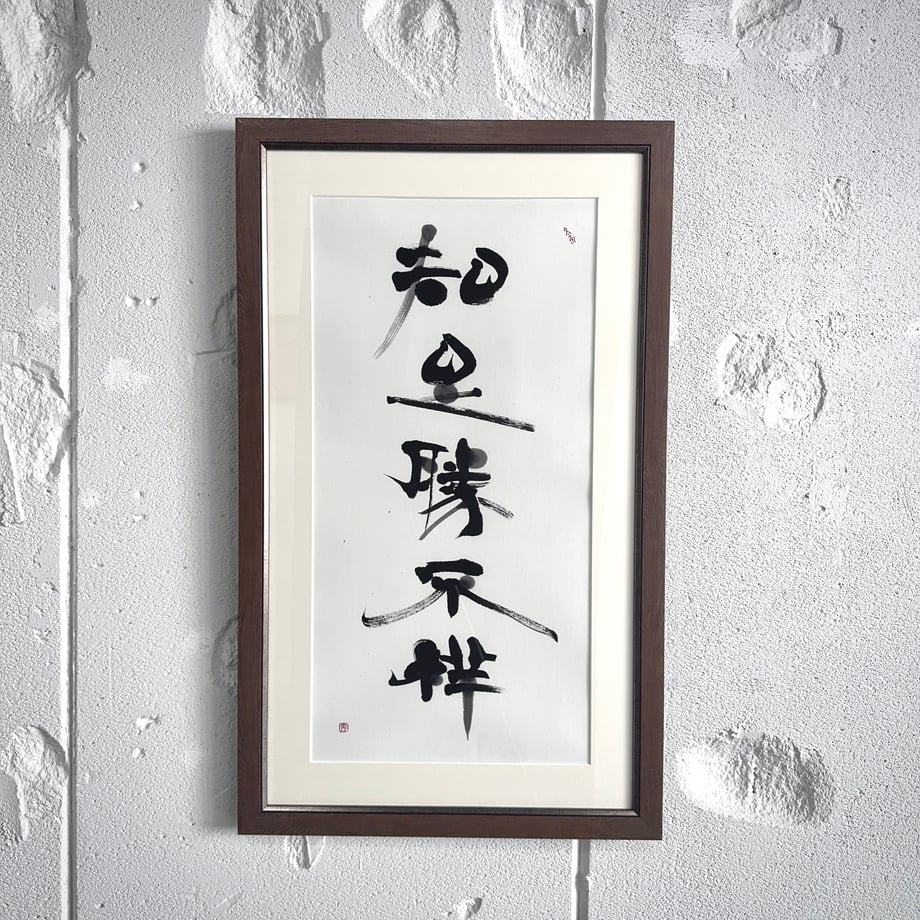 知足勝不祥